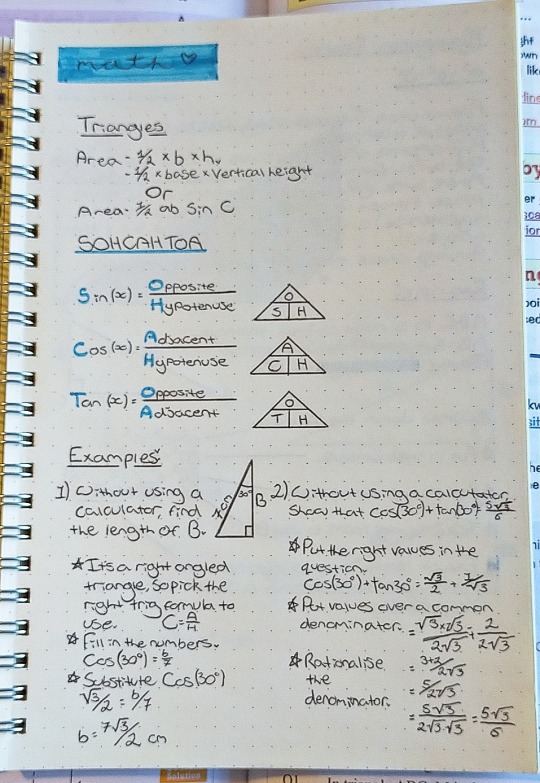 math ♡
Triangles
Area - 1/2 × b × h.
- 1/2 × base × vertical height
Or
Area - 1/2 ab Sin C
SOHCAHTOA
Sin(x) = Opposite / Hypotenuse
O
S | H
Cos(x) = Adjacent / Hypotenuse
A
C | H
Tan(x) = Opposite / Adjacent
O
T | H
Examples:
1) Without using a
calculator, find
the length of B.
30°
B
☆ It's a right angled
triangle, so pick the
right trig formula to
use. C = A/H
☆ Fill in the numbers.
Cos(30°) =
☆ Substitute Cos(30°)
√3/2 = b/7
b = 7√3/2 cm
2) Without using a calculator,
show that cos(30°) + tan(30°) 5√3/6
☆ Put the right values in the
question.
Cos(30°) + tan30° = √3/2 + 1/√3
☆ Put values over a common
denominator. = √3×√3/2√3 + 2/2√3
= 3+2/2√3
☆ Rationalise
the
denominator.
= 5/2√3
= 5√3/2√3·√3 = 5√3/6
Solution